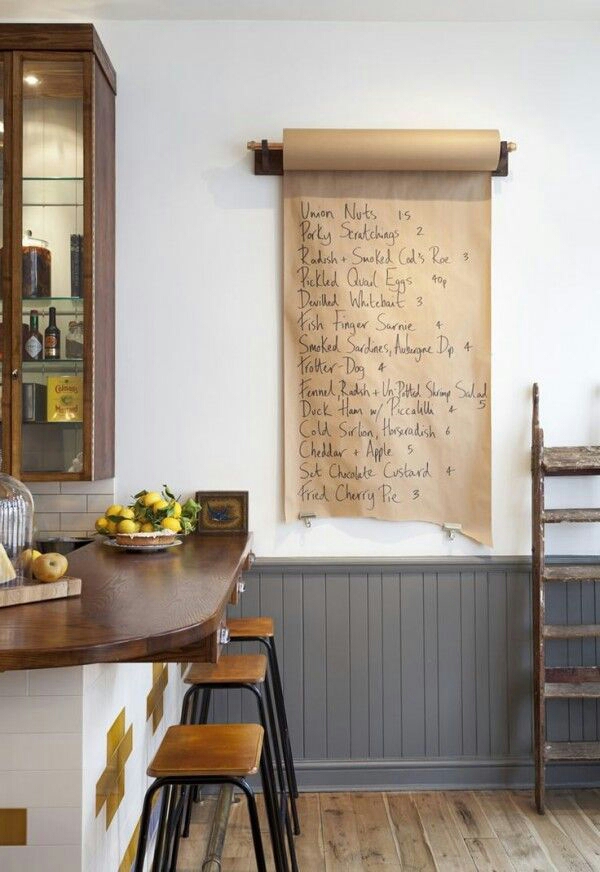 Union Nuts 1.5
Porky Scratchings 2
Radish + Smoked Cod's Roe 3
Pickled Quail Eggs 40p
Devilled Whitebait 3
Fish Finger Sarnie 4
Smoked Sardines, Aubergine Dip 4
Trotter-Dog 4
Fennel, Radish + Un-Potted Shrimp Salad 5
Duck Ham w/ Piccalilli 4
Cold Sirloin, Horseradish 6
Cheddar + Apple 5
Set Chocolate Custard 4
Fried Cherry Pie 3
Colman's